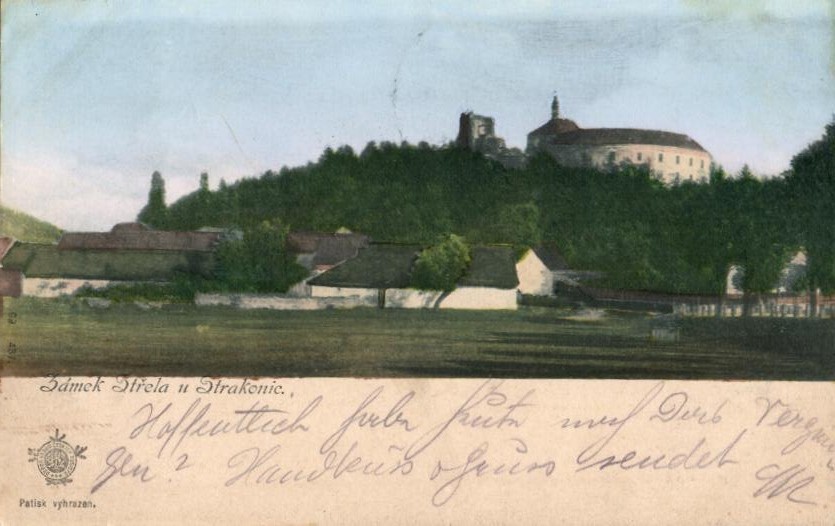 Zámek Střela u Strakonic.
Hoffentlich habe heute noch Vergnü
gen? Handkuss & Gruss sendet
Patisk vyhrazen.